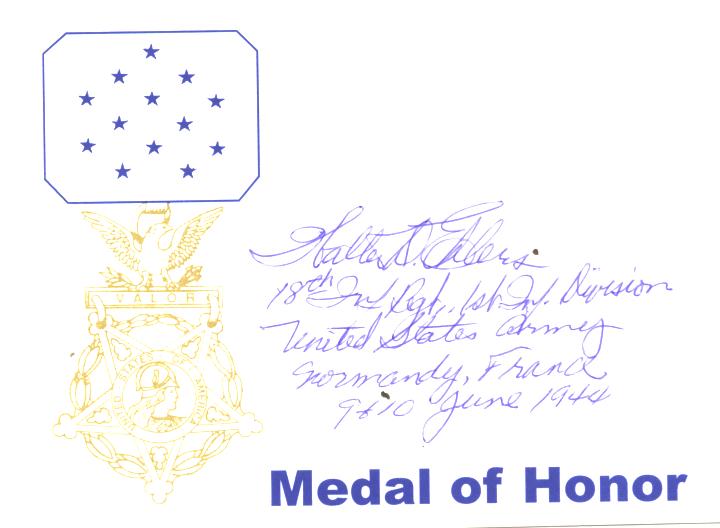 VALOR
UNITED STATES OF AMERICA
Walter D. Ehlers
18th Inf, Rgt., 1st Inf. Division
United States Army
Normandy, France
9&10 June 1944
Medal of Honor